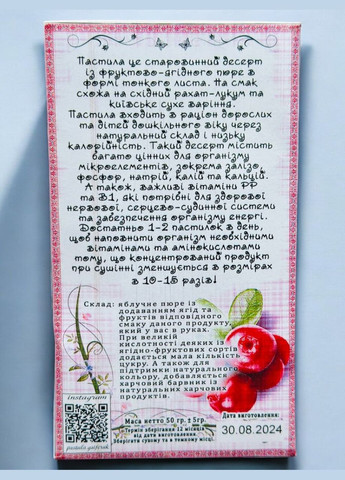 Пастила це старовинний десерт
із фруктово-ягідного пюре в
формі тонкого листа. На смак
схожа на східний рахат-лукум та
київське сухе варіння.
Пастила входить в раціон дорослих
та дітей дошкільного віку через
натуральний склад і низьку
калорійність. Такий десерт містить
багато цінних для організму
мікроелементів, зокрема залізо,
фосфор, натрій, калій та кальцій.
А також, важливі вітаміни РР
та В1, які потрібні для здорової
нервової, серцево-судинної системи
та забезпечення організму енергі.
Достатньо 1-2 пастилок в день,
щоб наповнити організм необхідними
вітамінами та амінокислотами
тому, що концентрований продукт
при сушінні зменшується в розмірах
в 10-15 разів!
Склад: яблучне пюре із
додаванням ягід та
фруктів відповідного
смаку даного продукту,
який у вас в руках.
При великій
кислотності деяких із
ягідно-фруктових сортів
додається мала кількість
цукру. А також для
підтримки натурального
кольору, добавляється
харчовий барвник із
натуральних харчових
продуктів.
instagram
Маса нетто 50 гр. ± 5гр
Термін зберігання 12 місяців
від дати виготовлення.
Зберігати сухому та в темному місці.
Дата виготовлення:
30.08.2024